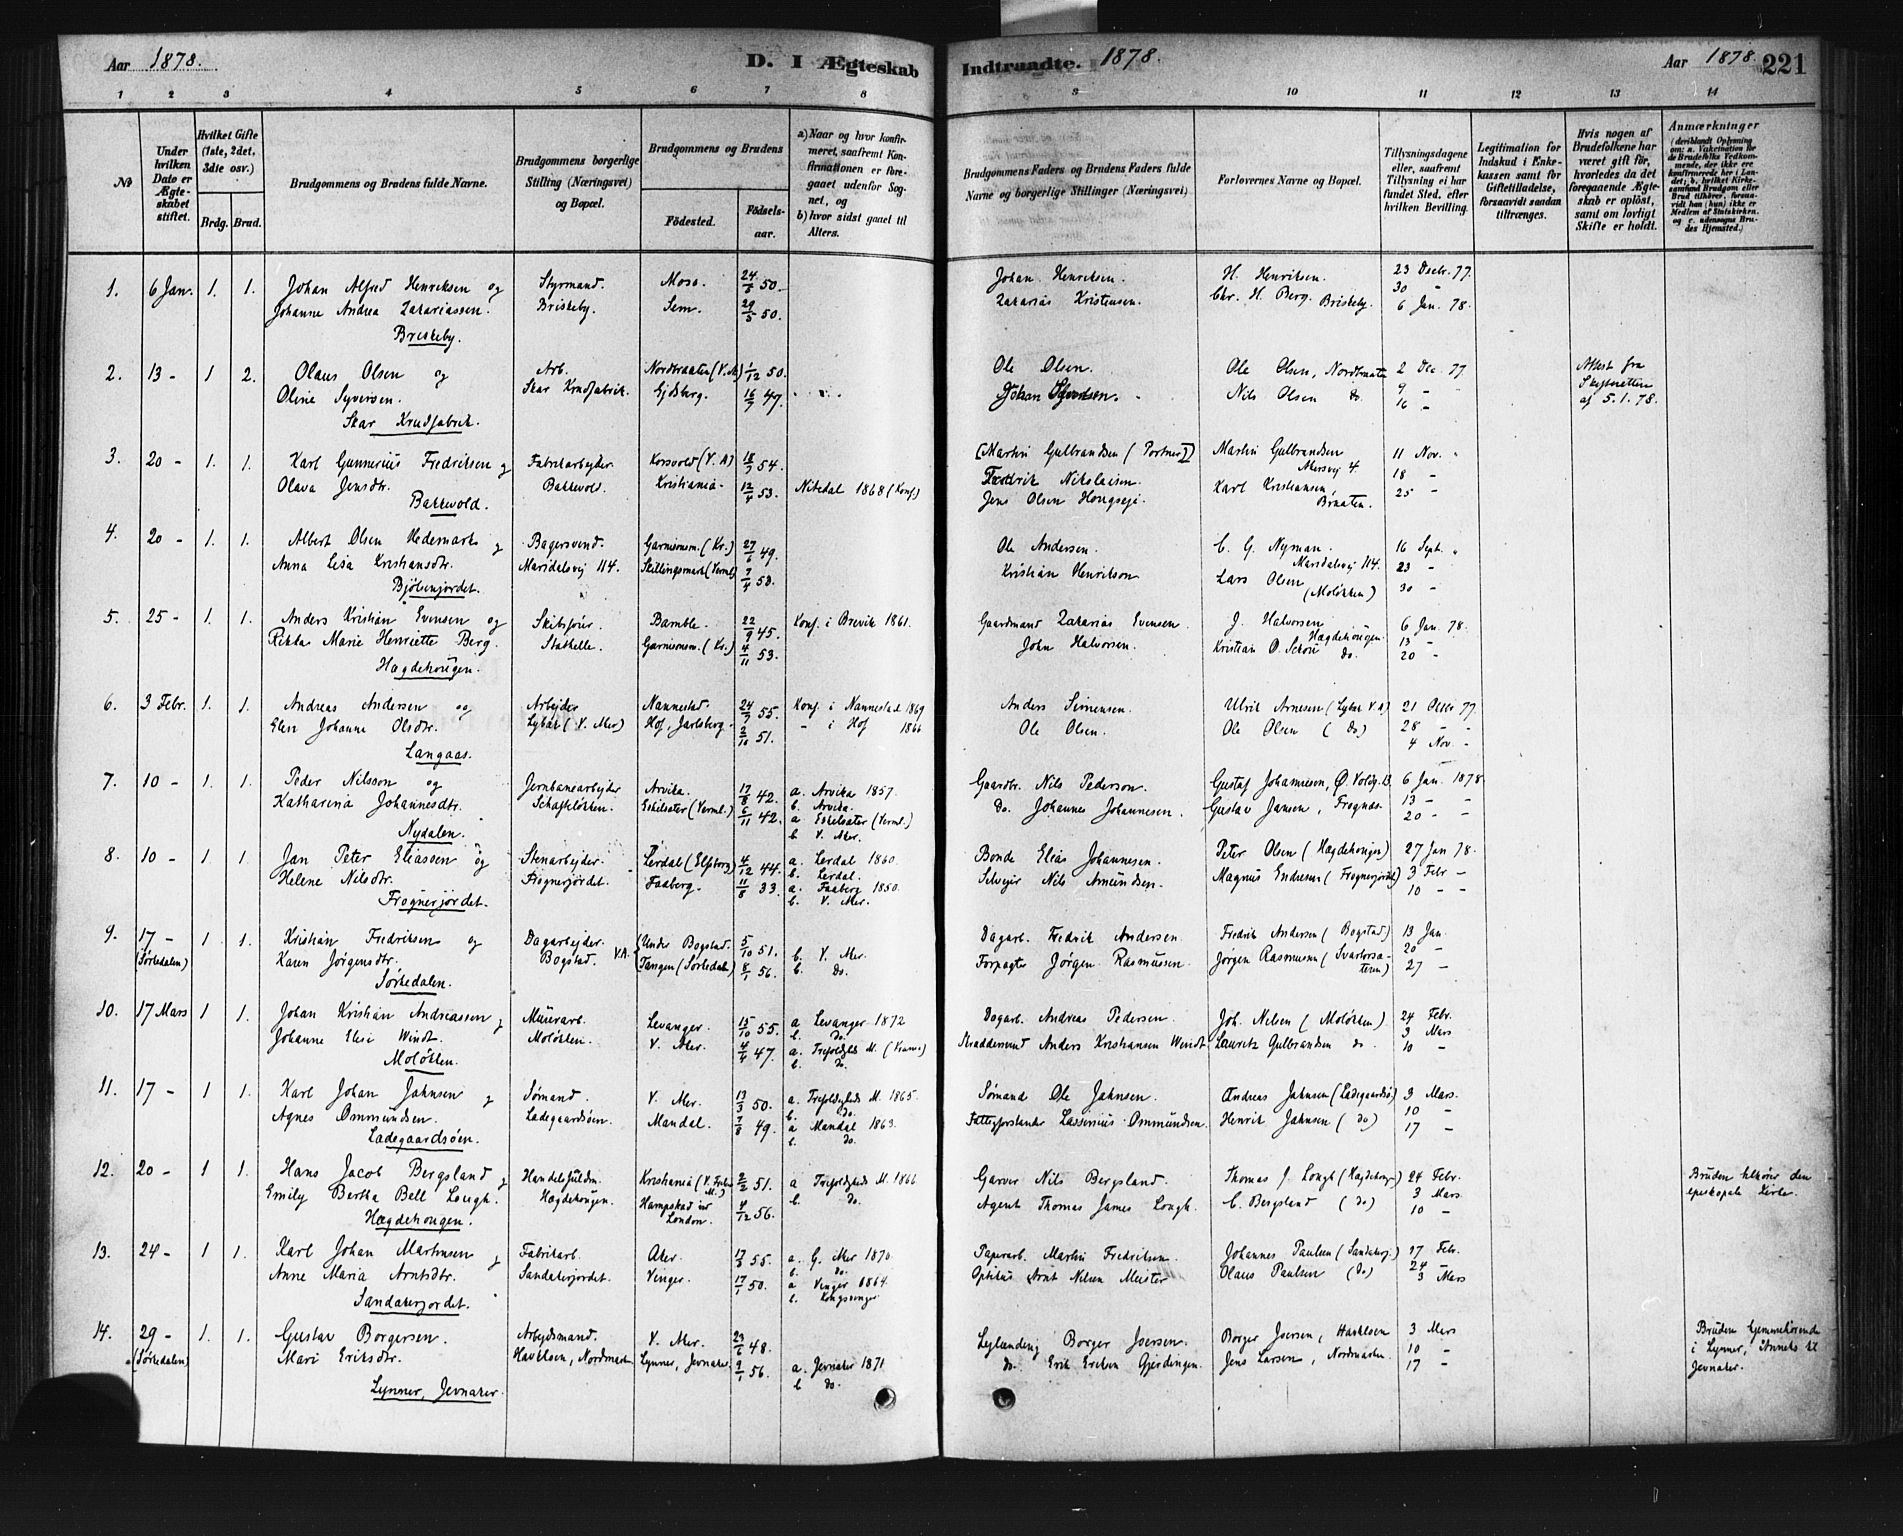 Aar 1878. D. I Ægteskab Indtraadte. 1878. Aar 1878. 221
1 2 3 4 5 6 7 8 9 10 11 12 13 14
№
Under hvilken Dato er Ægteskabet stiftet.
Hvilket Gifte (1ste, 2det, 3die osv.)
Brdg. Brud.
Brudgommens og Brudens fulde Navne.
Brudgommens borgerlige Stilling (Næringsvei) og Bopæl.
Brudgommens og Brudens
Födested. Födselsaar.
a) Naar og hvor konfirmeret, saafremt Konfirmationen er foregaaet udenfor Sognet, og
b) hvor sidst gaaet til Alters.
Brudgommens Faders og Brudens Faders fulde Navne og borgerlige Stillinger (Næringsvei)
Forlovernes Navne og Bopæl.
Tillysningsdagene eller, saafremt Tillysning ei har fundet Sted, efter hvilken Bevilling.
Legitimation for Indskud i Enkekassen samt for Giftetilladelse, forsaavidt saadan tiltrænges.
Hvis nogen af Brudefolkene har været gift för, hvorledes da det foregaaende Ægteskab er oplöst, samt om lovligt Skifte er holdt.
Anmærkninger
1. 6 Jan. 1. 1. Johan Alfred Henriksen og Styrmand. Moss. 24/5 50. Johan Henriksen. H. Henriksen. 23 Decbr. 77.
Johanne Andrea Zakariassen. Briskeby. Sem. 29/5 50. Zakarias Kristensen. Chr. H. Berg. Briskeby. 30 "
Briskeby. 6 Jan. 78.
2. 13 - 1 2. Olaus Olsen og Arb. Nordbraaten (V. A) 1/12 50. Ole Olsen. Ole Olsen, Nordbraaten 2 Dec. 77 Attest fra
Oline Syversen. Skar Krudfabrik. 16/7 47. Nils Olsen do. 9 - Skifteretten
Skar Krudfabrik. 16 - af 5.1.78.
3. 20 - 1. 1. Karl Gunnerius Fredriksen og Fabrikarbejder. Korsvold (V. A) 18/7 54. [Martin Gulbrandsen (Portner)] Martin Gulbrandsen 11 Nov. "
Olava Jensdtr. Bakkevold. Kristiania. 12/4 53. Nitedal 1868 (Konf) Fredrik Nikolaisen. Akersvej 4. 18 -
Bakkevold. Jens Olsen Haugseje. Karl Kristiansen. Braaten. 25 -
4. 20 - 1. 1. Albert Olsen Hedemark og Bagersvend. Garnisonsm. (Kr.) 27/6 49. Ole Andersen. C. G. Nyman. 16 Sept. "
Anna Lisa Kristiansdtr. Maridalsvej 114. Skillingsmark (Verml) 7/4 58. Kristian Henrikson Maridalsvej 114. 23 -
Bjölsenjordet. Lars Olsen (Moløkken) 30 -
5. 25 - 1. 1. Anders Kristian Evensen og Skibsför. Bamble. 22/9 45. Konf. i Brevik 1861. Gaardmand Zakarias Evensen. J. Halvorsen 6 Jan. 78.
Rikka Marie Henriette Berg. Stathelle. Garnisonsm. (Kr.) 4/11 53. John Halvorsen. Hægdehougen. 13 -
Hægdehougen. Kristian O. Schou do. 20 -
6. 3 Febr. 1. 1. Andreas Andersen og Arbejder Nannestad. 24/7 55. Konf. i Nannestad 1869 Anders Simensen. Ulrik Arnesen (Lybæk V.A) 21 Octbr 77
Elen Johanne Olsdtr. Lybæk (V. Aker) Hof, Jarlsberg. 2/10 51. - i Hof 1866 Ole Olsen. Ole Olsen (do) 28 - -
Langaas. 4 Nov. -
7. 10 - 1. 1. Peder Nilsson og Jernbanearbejder Arvika. 17/8 42. a. Arvika 1857. Gaardbr. Nils Pederson. Gustaf Johannesen, Ø. Voldg. 13. 6 Jan. 1878.
Katharina Johannesdtr. Schafteløkken. Eskilsater (Verml.) 6/11 42. b. Arvika. Do. Johannes Johannesen. Gustav Jansen, Frognæs. 13 - -
Nydalen. a Eskelsater (Verml.) 20 - -
b V. Aker.
8. 10 - 1 1. Jan Peter Eliassen og Stenarbejder. Lerdal (Elfsborg) 4/12 44. a. Lerdal 1860. Bonde Elias Johannesen. Peter Olsen (Hægdehougen) 27 Jan 78.
Helene Nilsdtr. Frognerjordet. Faaberg. 11/8 33. b. Lerdal. Selvejer Nils Amundsen. Magnus Endresen (Frognerjordet) 3 Febr -
Frognerjordet. a. Faaberg 1850. 10 - -
b. V. Aker.
9. 17 - (Sørkedalen) 1 1. Kristian Fredriksen og Dagarbejder. (Under Bogstad. 5/10 51. b. V. Aker. Dagarb. Fredrik Andersen. Fredrik Andersen (Bogstad) 13 Jan.
Karen Jörgensdtr. Bogstad. V.A. Tangen (Sørkedalen) 8/1 56. b. do. Forpagter Jörgen Rasmussen Jörgen Rasmussen (Svartorsæteren) 20 -
Sørkedalen. 27 -
10. 17 Mars 1 1. Johan Kristian Andreassen og Muurarb. Levanger. 15/10 55. a Levanger 1872 Dagarb. Andreas Pedersen. Joh. Nilsen (Moløkken) 24 Febr.
Johanne Elise Windt. Moløkken. V. Aker. 4/4 47. b. do. Skreddersvend Anders Kristiansen Windt. Lauritz Gulbrandsen do. 3 Mars
Moløkken. a. Trefoldigheds M. (Krania) 10 -
b. do.
11. 17 - 1 1 Karl Johan Jahnsen og Sømand. V. Aker. 13/3 50. a. Trefoldigheds M. 1865. Sømand Ole Jahnsen. Andreas Jahnsen (Ladegaardsö.) 3 Mars.
Agnes Ommundsen. Ladegaardsöen. Mandal. 7/8 49. b. do. Fattigforstander Lasserius Ommundsen. Henrik Jahnsen (do) 10 -
Ladegaardsöen. a Mandal 1863. 17 -
b. do.
12. 20 - 1 1. Hans Jacob Bergsland og Handelsfuldm. Kristiania (V. Frelsers M.) 2/2 51. a Trefoldigheds M. 1866 Garver Nils Bergsland. Thomas J. Lough (Hægdehougen) 24 Febr. Bruden tilhører den
Emily Bertha Bell Lough. Hægdehougen. Hampstad ved London. 4/12 56. b do. Agent Thomas James Lough. C. Bergsland (do) 3 Mars episkopale Kirke.
Hægdehougen. 10 -
13. 24 - 1 1. Karl Johan Martinsen og Fabrikarb. Aker. 17/3 55. a. G. Aker 1870. Papirarb. Martin Fredriksen. Johannes Paulsen (Sandakerj.) 17 Febr.
Anne Maria Arntsdtr. Sandakerjordet. Vinger. 17/1 50. b. do. Optikus Arnt Nilsen Meister Olaus Paulsen (do) 24 -
Sandakerjordet. a Vinger 1864. 3 Mars
b. Kongsvinger
14. 29 - (Sørkedalen) 1. 1. Gustav Borgersen. Arbejdsmand. V. Aker. 23/6 48. Leylænding Borger Iversen. Borger Iversen, Hakklöen 3 Mars Bruden hjemmehörende
Mari Eriksdtr. Hakklöen, Nordmarken Lynner, Jevnaker. 9/1 56. a. Jevnaker 1871 do. Erik Eriksen Gjerdingen. Jens Larsen, Nordmarken. 10 - i Lynner, Anneks til
Lynner, Jevnaker. b do. 17 - Jevnaker.